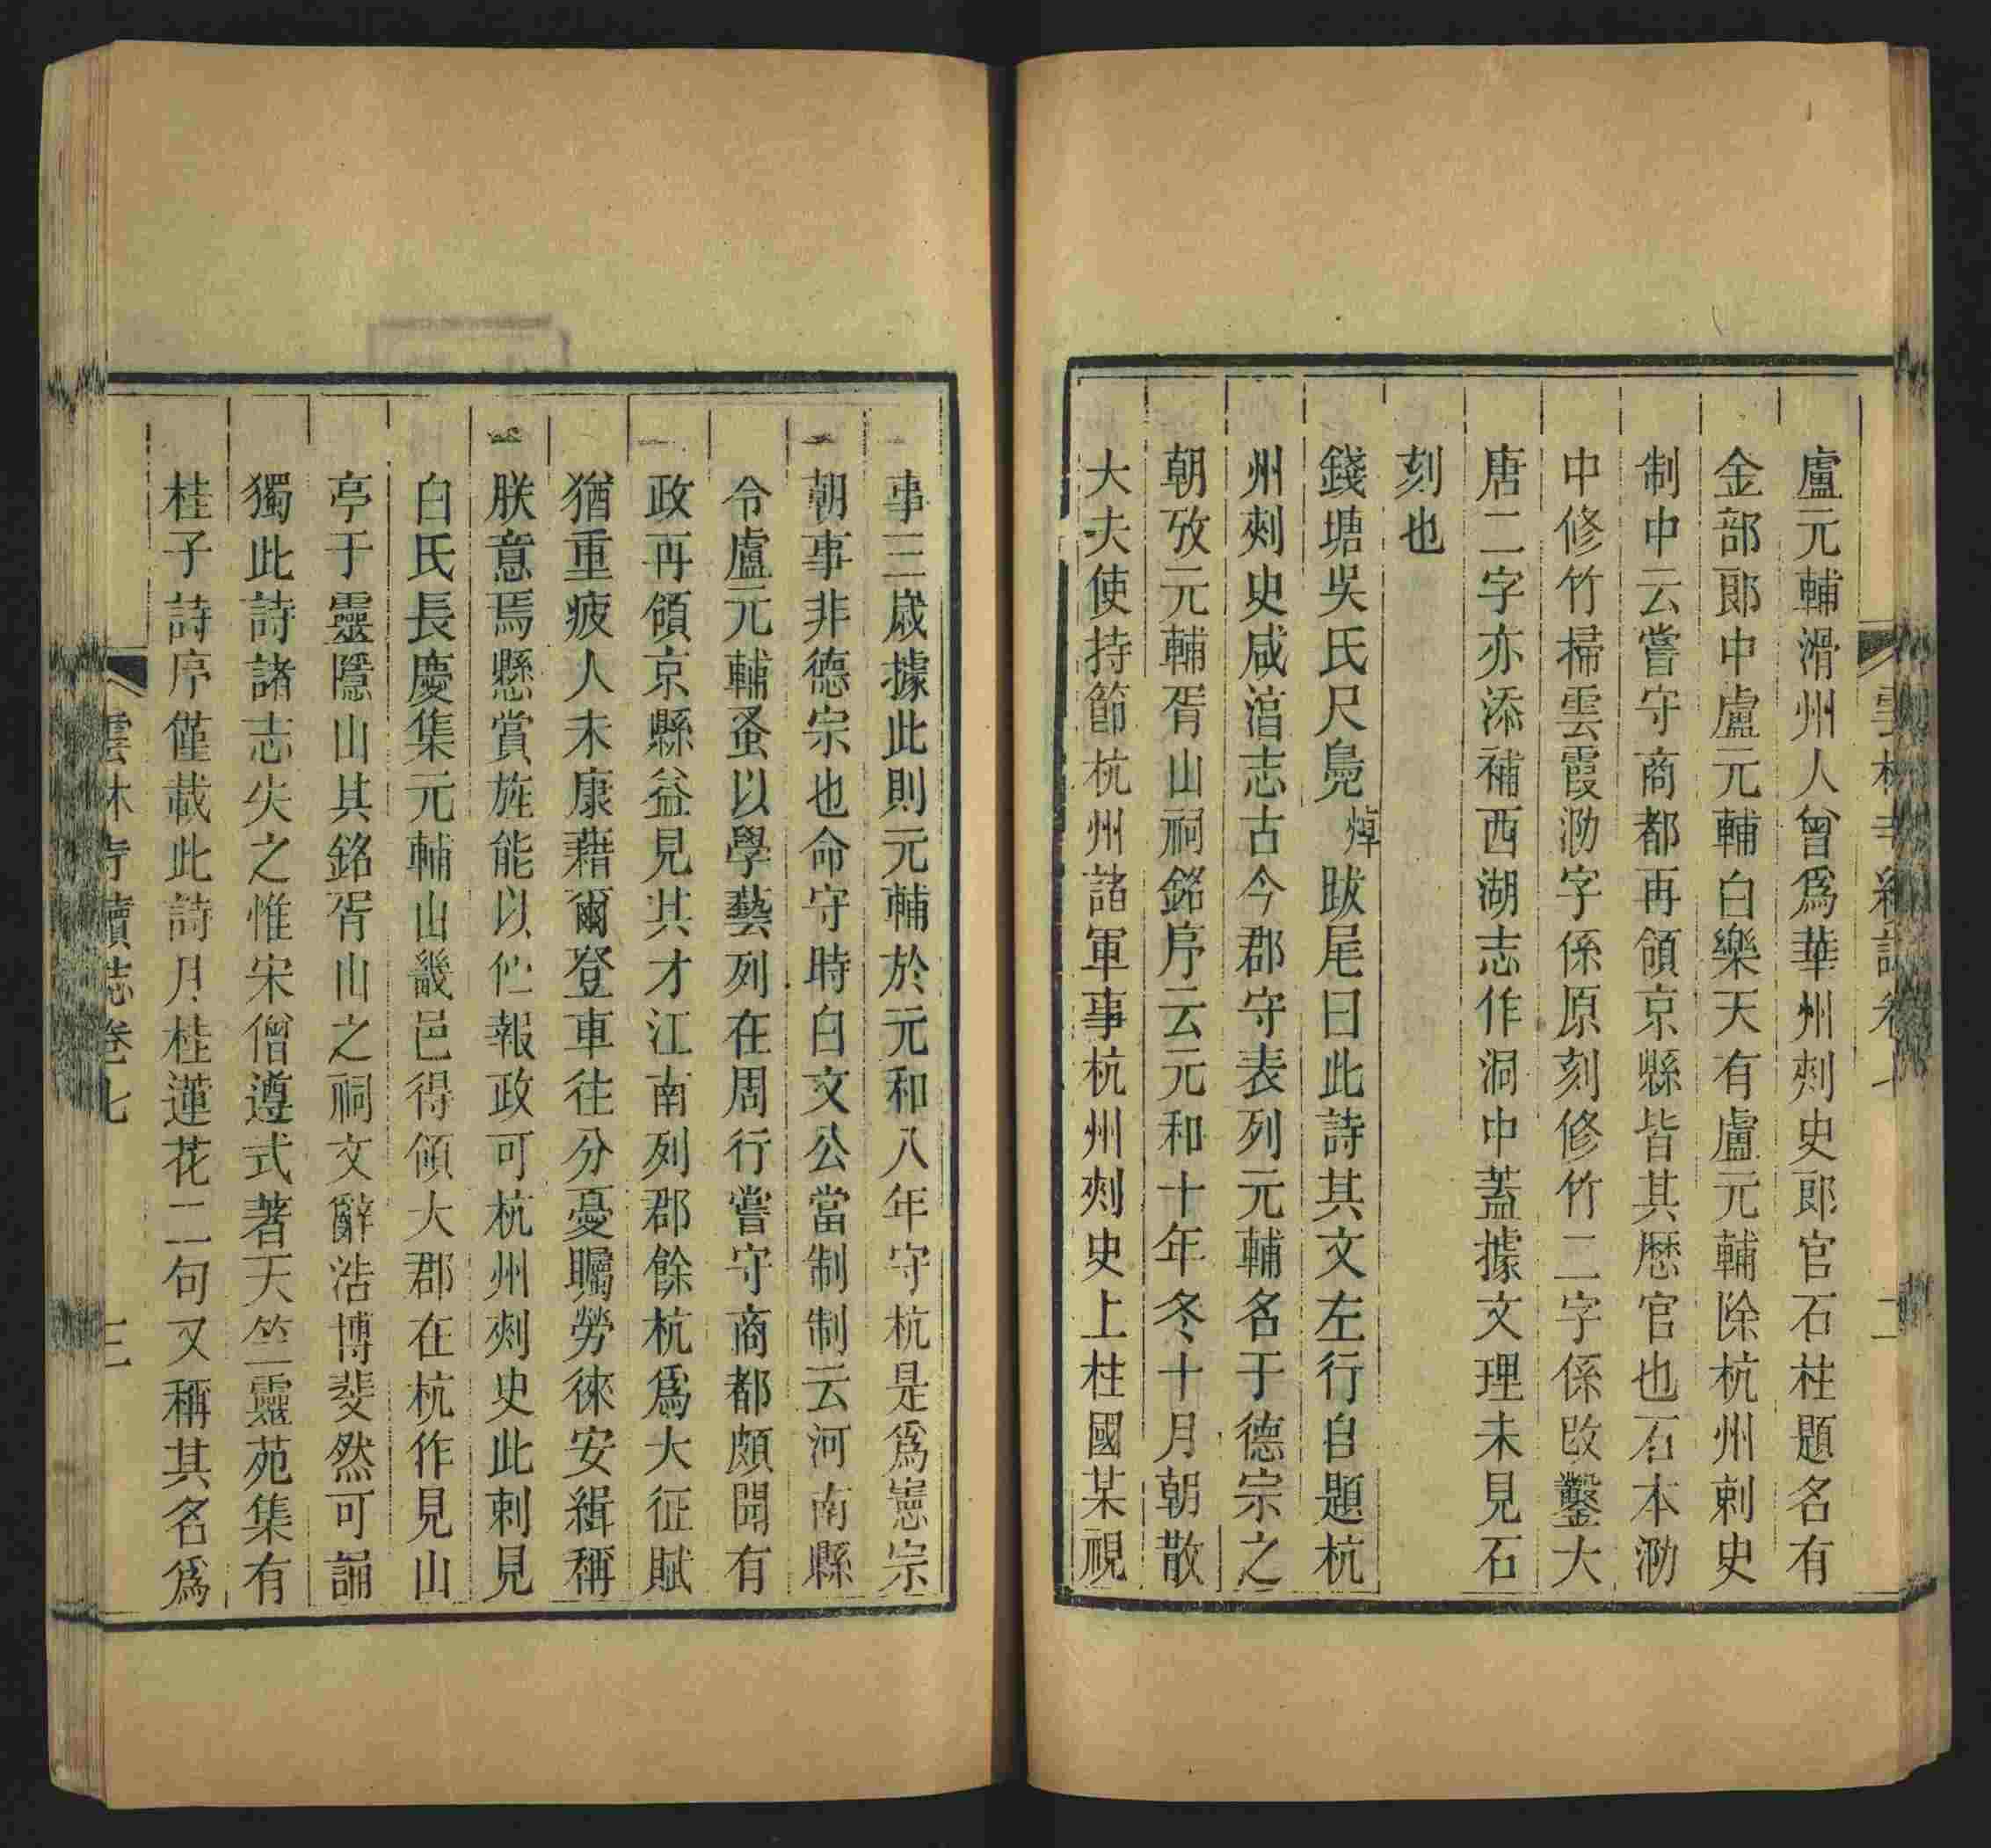 盧元輔滑州人曾爲華州刺史郎官石柱題名有
金部郎中盧元輔白樂天有盧元輔除杭州刺史
制中云嘗守商都再領京縣皆其歷官也石本泐
中修竹掃雲霞泐字係原刻修竹二字係改鑿大
唐二字亦添補西湖志作洞中蓋據文理未見石
刻也
錢塘吳氏尺鳧焯跋尾曰此詩其文左行自題杭
州刺史咸淳志古今郡守表列元輔名于德宗之
朝攷元輔胥山祠銘序云元和十年冬十月朝散
大夫使持節杭州諸軍事杭州刺史上柱國某視
事三歲據此則元輔於元和八年守杭是爲憲宗
朝事非德宗也命守時白文公當制制云河南縣
令盧元輔蚤以學藝列在周行嘗守商都頗聞有
政再領京縣益見其才江南列郡餘杭爲大征賦
猶重疲人未康藉爾登車往分憂矚勞徠安緝稱
朕意焉懸賞旌能以佇報政可杭州刺史此刺見
白氏長慶集元輔山畿邑得領大郡在杭作見山
亭于靈隱山其銘胥山之祠文辭浩博斐然可誦
獨此詩諸志失之惟宋僧遵式著天竺靈苑集有
桂子詩序僅載此詩月桂蓮花二句又稱其名爲
雲林寺續志卷七 三